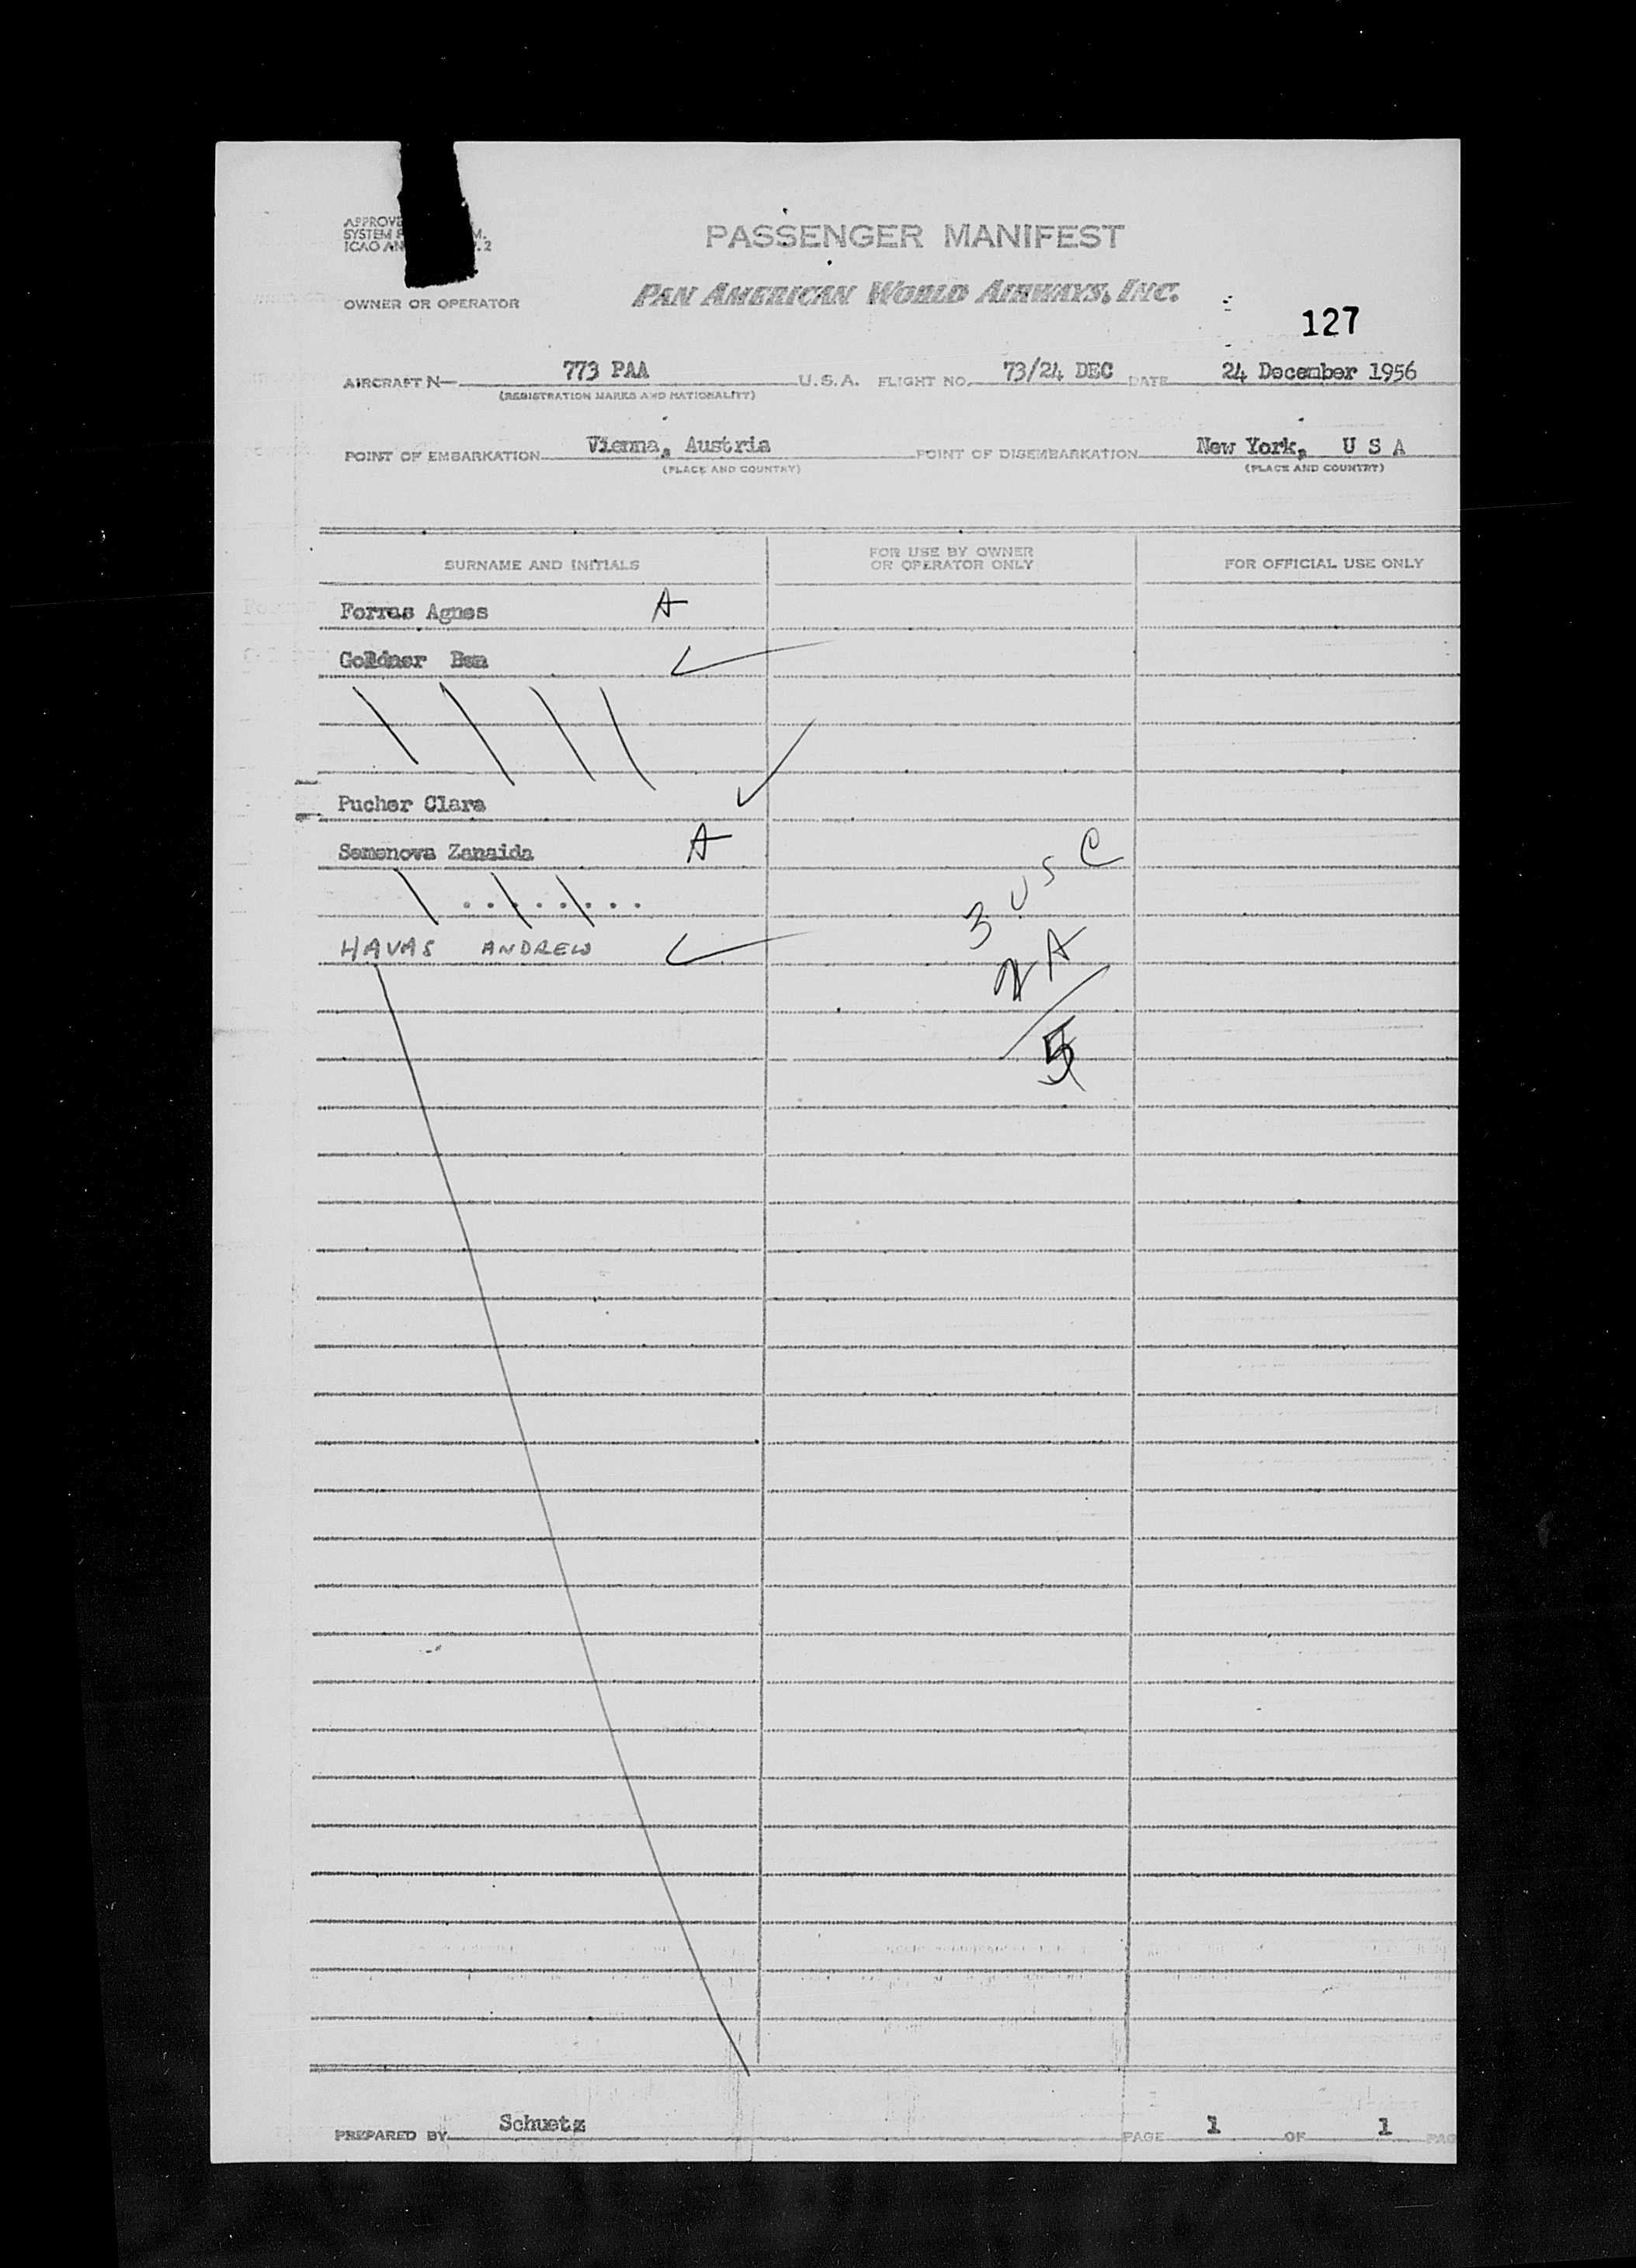 APPROVE
SYSTEM F M.
ICAO AN . 2
PASSENGER MANIFEST
OWNER OR OPERATOR
PAN AMERICAN WORLD AIRWAYS, INC.
127
AIRCRAFT N— 773 PAA U.S.A. FLIGHT NO. 73/24 DEC DATE 24 December 1956
(REGISTRATION MARKS AND NATIONALITY)
POINT OF EMBARKATION Vienna, Austria POINT OF DISEMBARKATION New York, U S A
(PLACE AND COUNTRY) (PLACE AND COUNTRY)
SURNAME AND INITIALS FOR USE BY OWNER OR OPERATOR ONLY FOR OFFICIAL USE ONLY
Forras Agnes A
Goldner Ben
Pucher Clara
Semenova Zanaida A
HAVAS ANDREW
3 USC
2 A
5
PREPARED BY Schuetz PAGE 1 OF 1 PAG